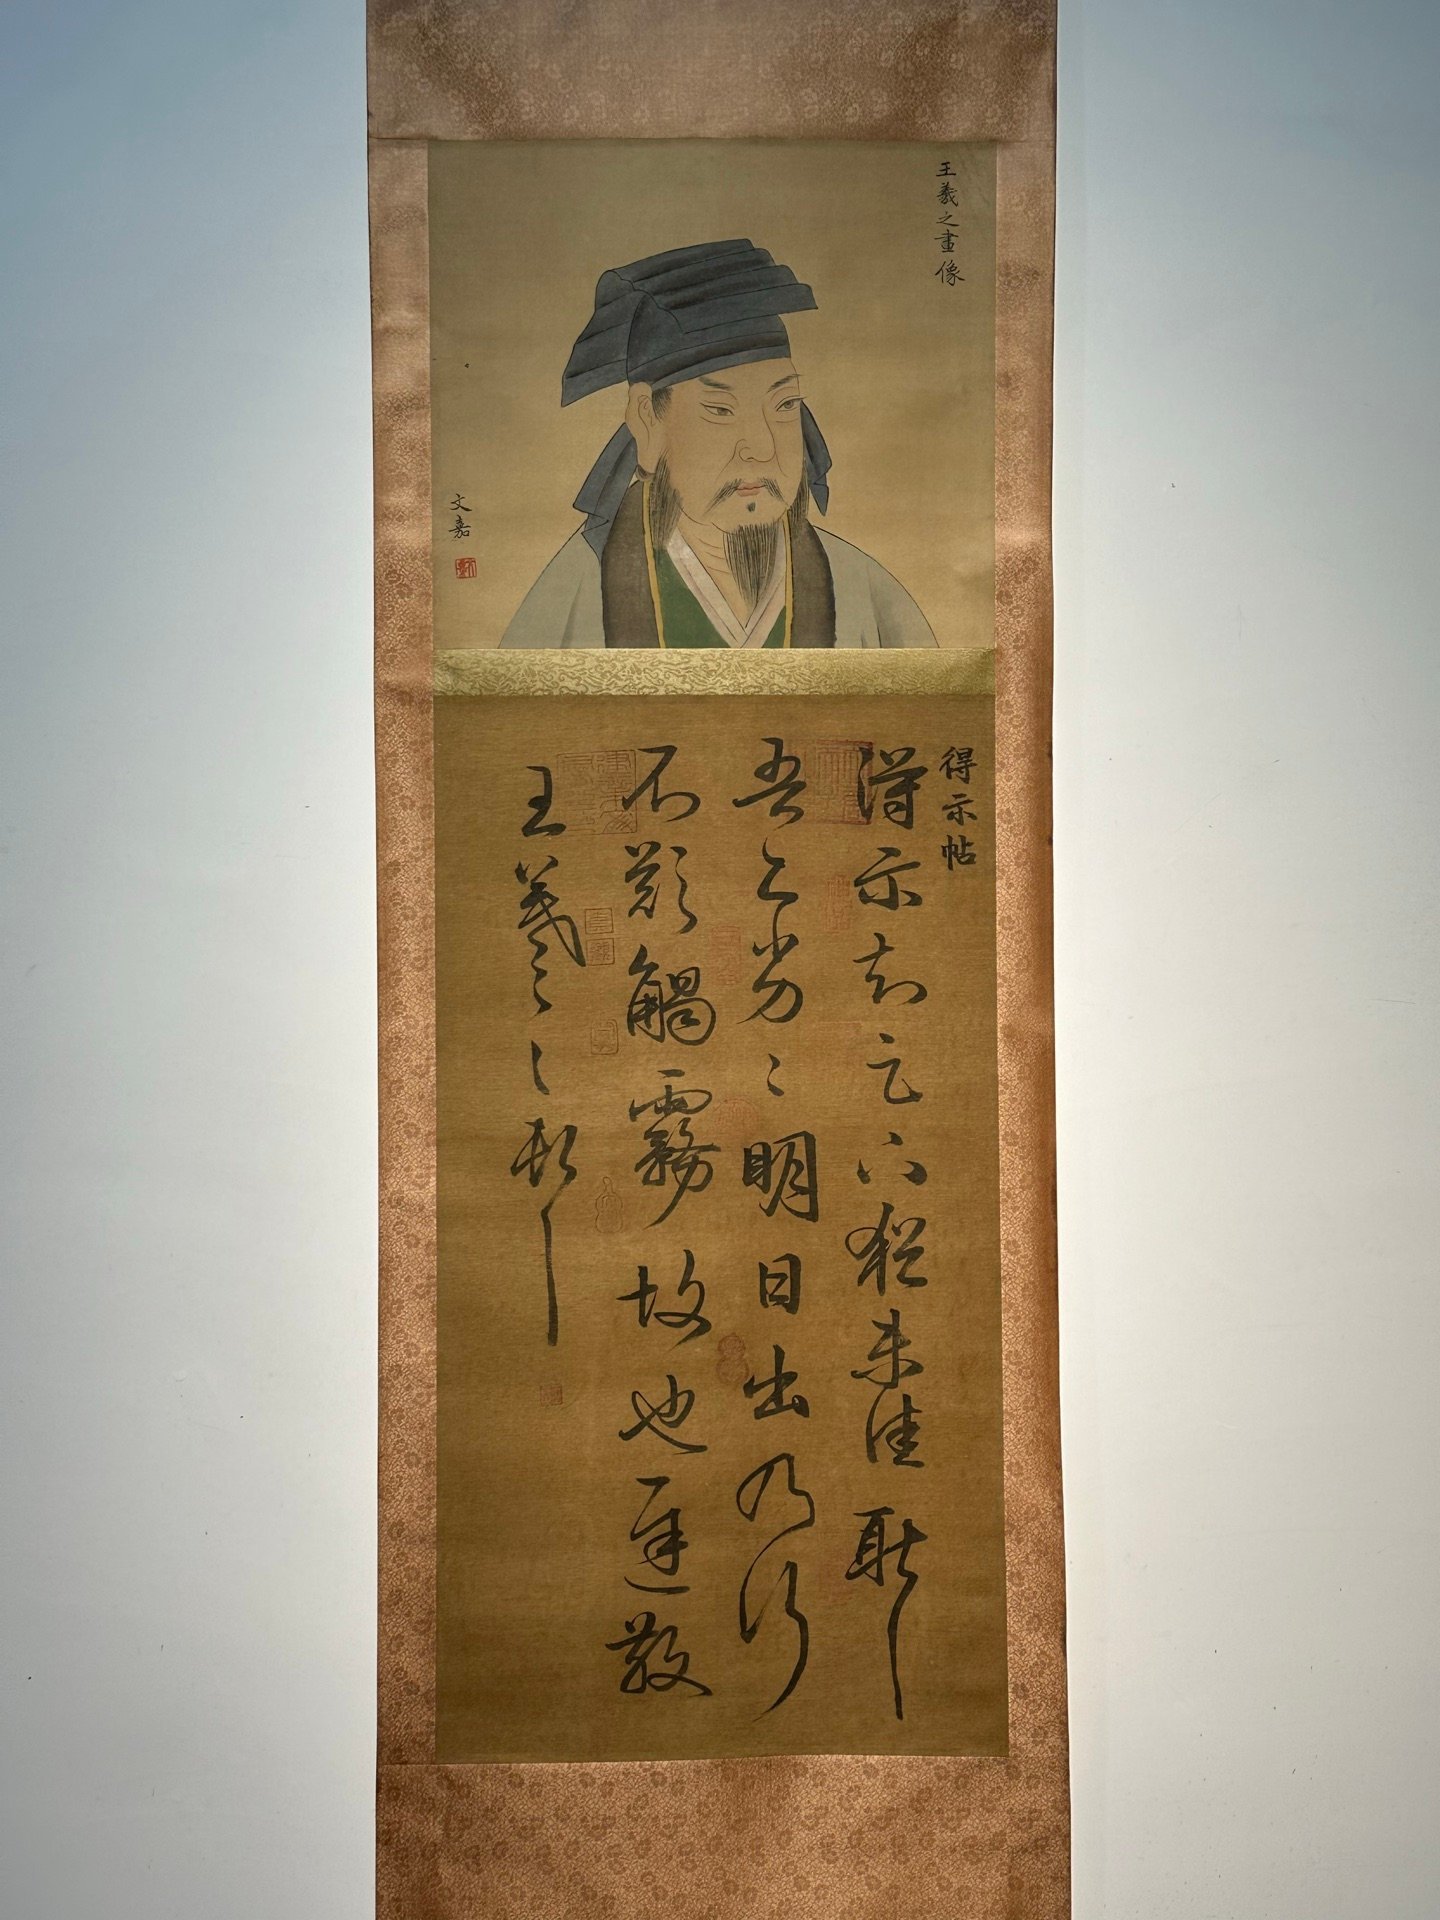 王羲之畫像
文嘉
得示帖
得示知足下猶未佳耿耿
吾亦劣劣明日出乃行
不欲觸霧故也遲散
王羲之頓首